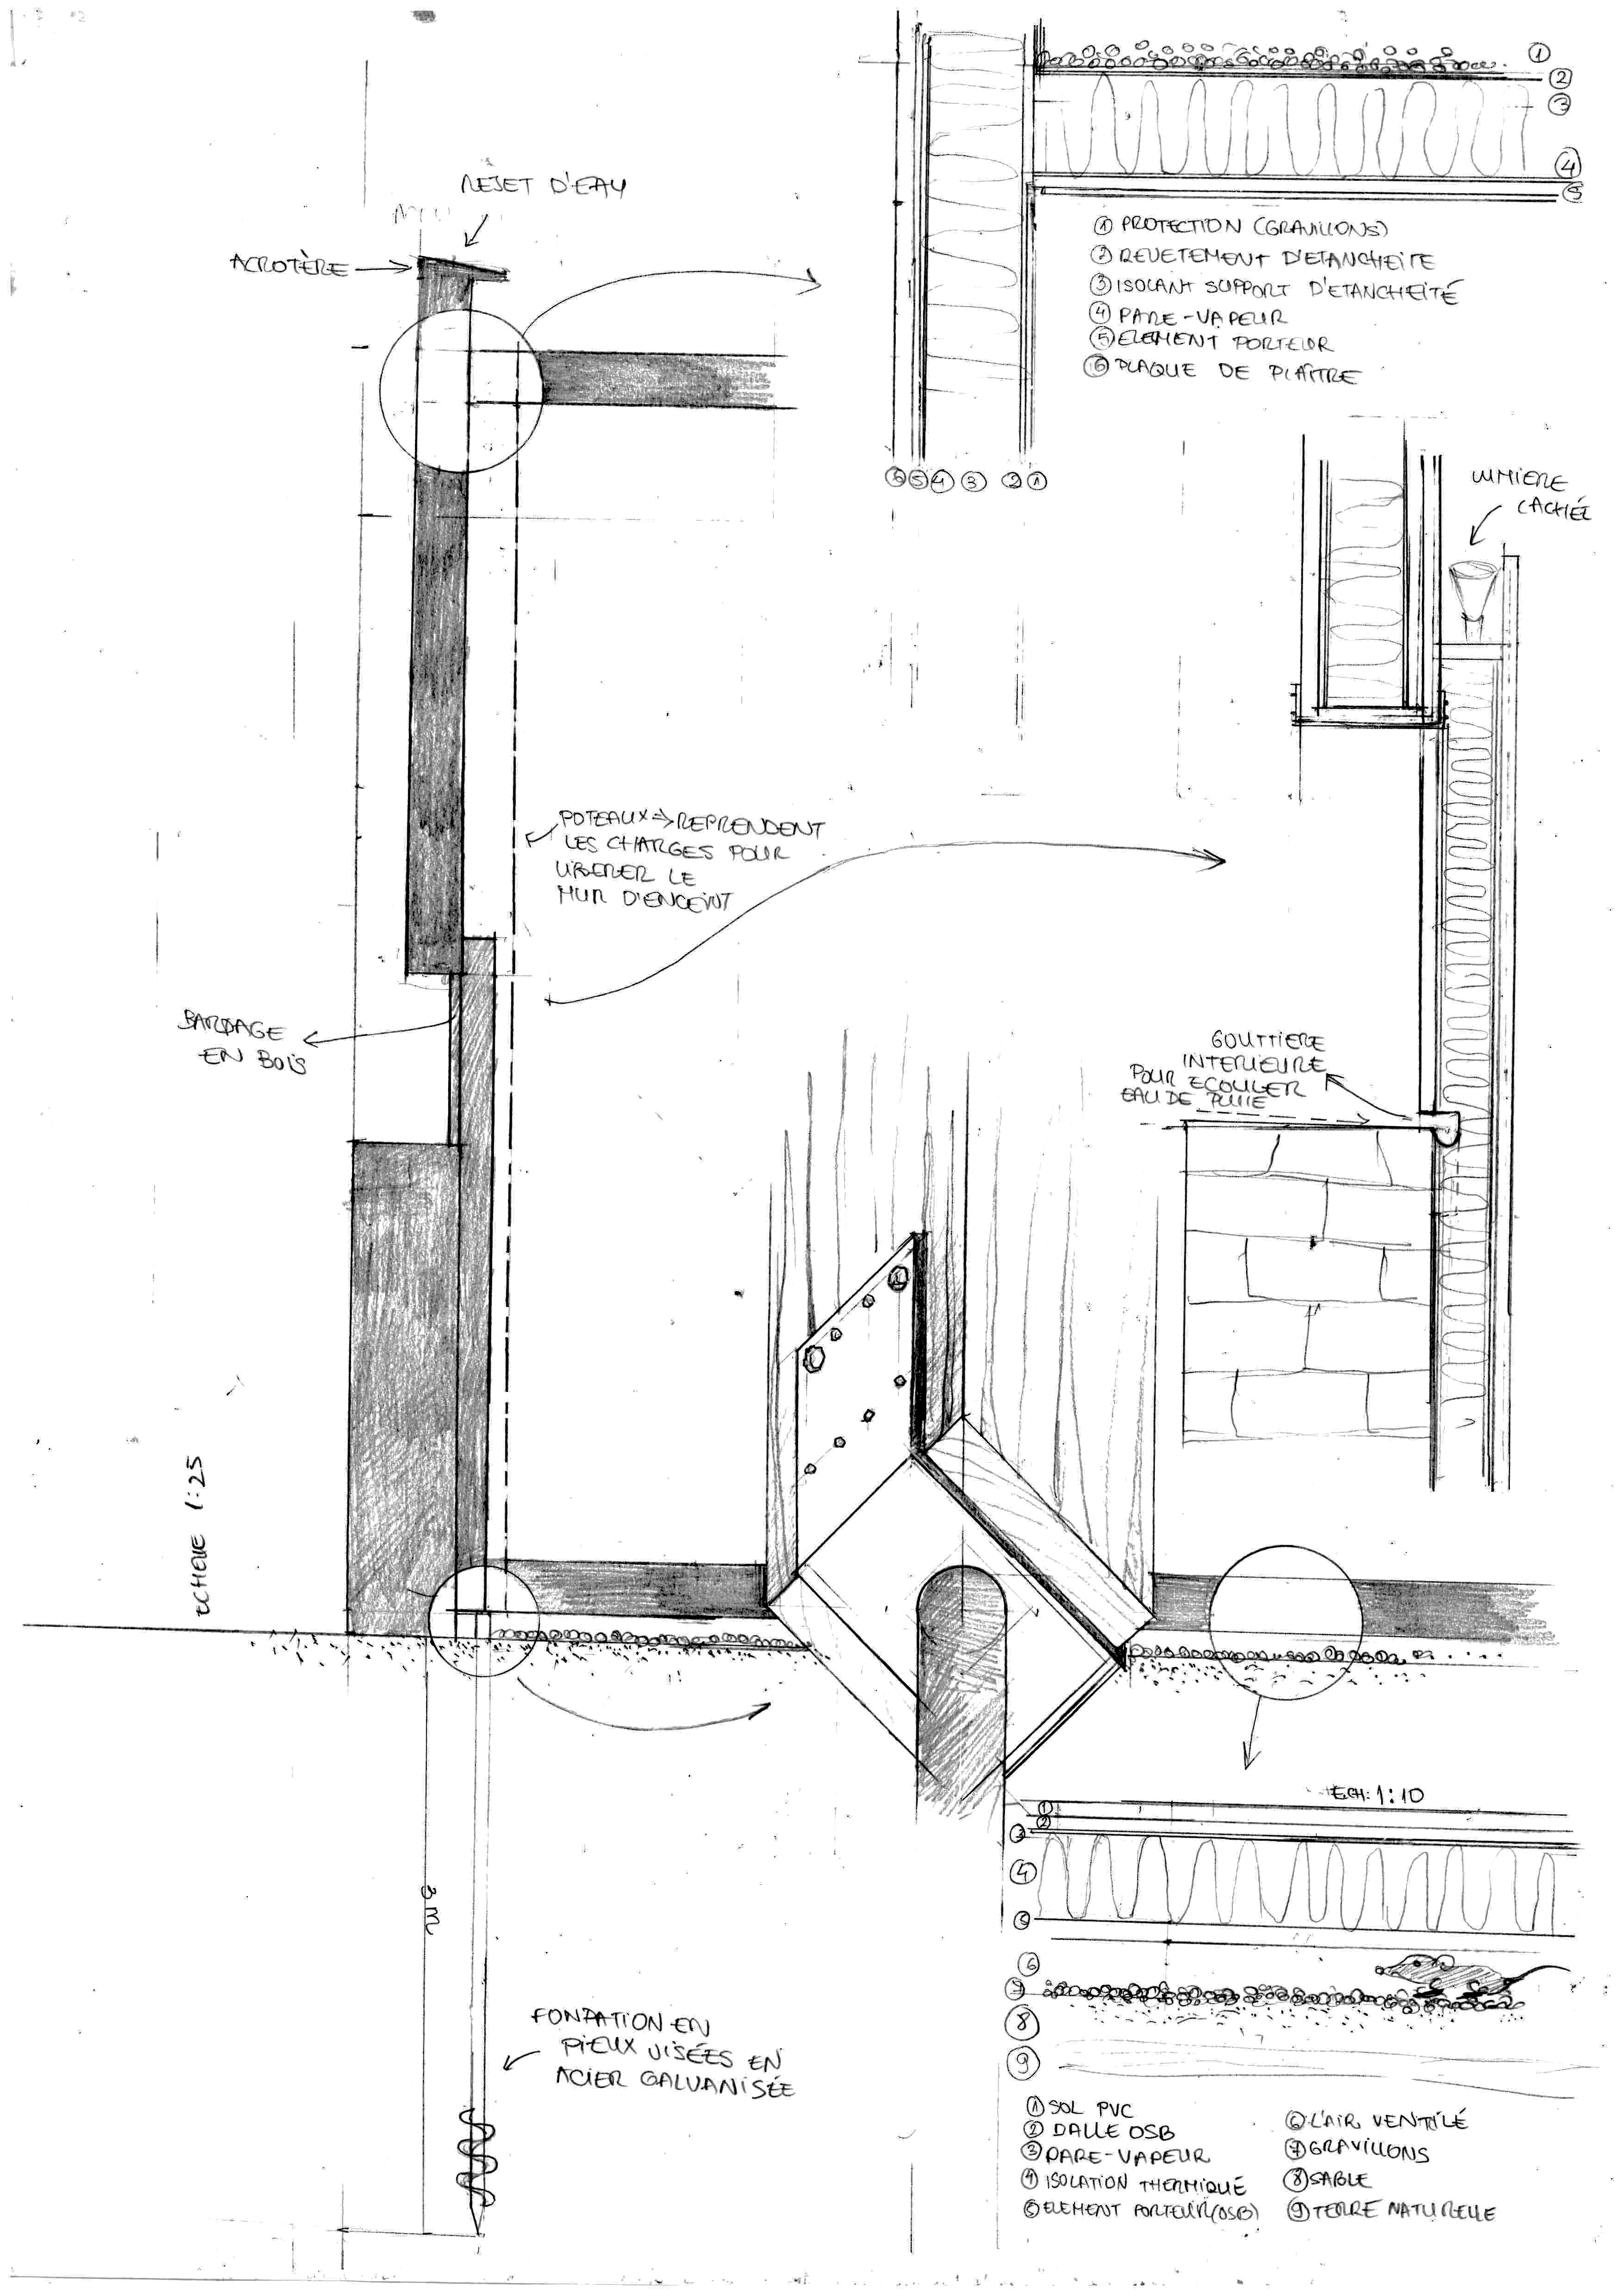 REJET D'EAU
ACROTÈRE
①
②
③
④
⑤
① PROTECTION (GRAVILLONS)
② REVETEMENT D'ETANCHEITE
③ ISOLANT SUPPORT D'ETANCHEITÉ
④ PARE-VAPEUR
⑤ ELEMENT PORTEUR
⑥ PLAQUE DE PLÂTRE
⑥⑤④ ③ ② ①
LUMIERE
CACHÉE
POTEAUX ⇒ REPRENDENT
LES CHARGES POUR
LIBERER LE
MUR D'ENCEINT
BARDAGE
EN BOIS
GOUTTIERE
INTERIEURE
POUR ECOULER
EAU DE PLUIE
ECHELLE 1:25
ECH: 1:10
①
②
③
④
⑤
⑥
⑧
⑨
3 m
FONDATION EN
PIEUX VISÉES EN
ACIER GALVANISÉE
① SOL PVC
② DALLE OSB
③ PARE-VAPEUR
④ ISOLATION THERMIQUE
⑤ ELEMENT PORTEUR (OSB)
⑥ L'AIR VENTILÉ
⑦ GRAVILLONS
⑧ SABLE
⑨ TERRE NATURELLE